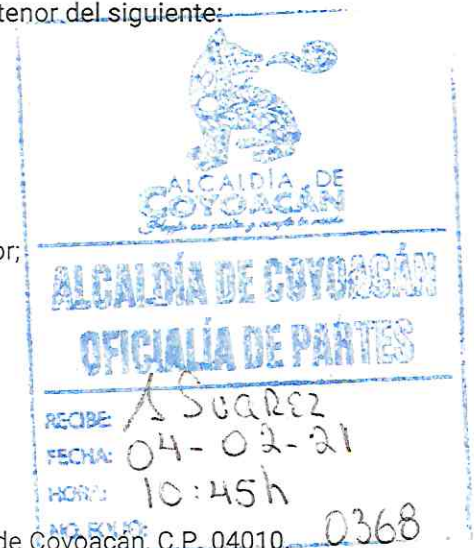 tenor del siguiente:
ALCALDÍA DE
COYOACÁN
or;
ALCALDÍA DE COYOACÁN
OFICIALÍA DE PARTES
RECIBE: A SUAREZ
FECHA: 04-02-21
HORA: 10:45h
NO. FOLIO: 0368
de Coyoacán, C.P. 04010